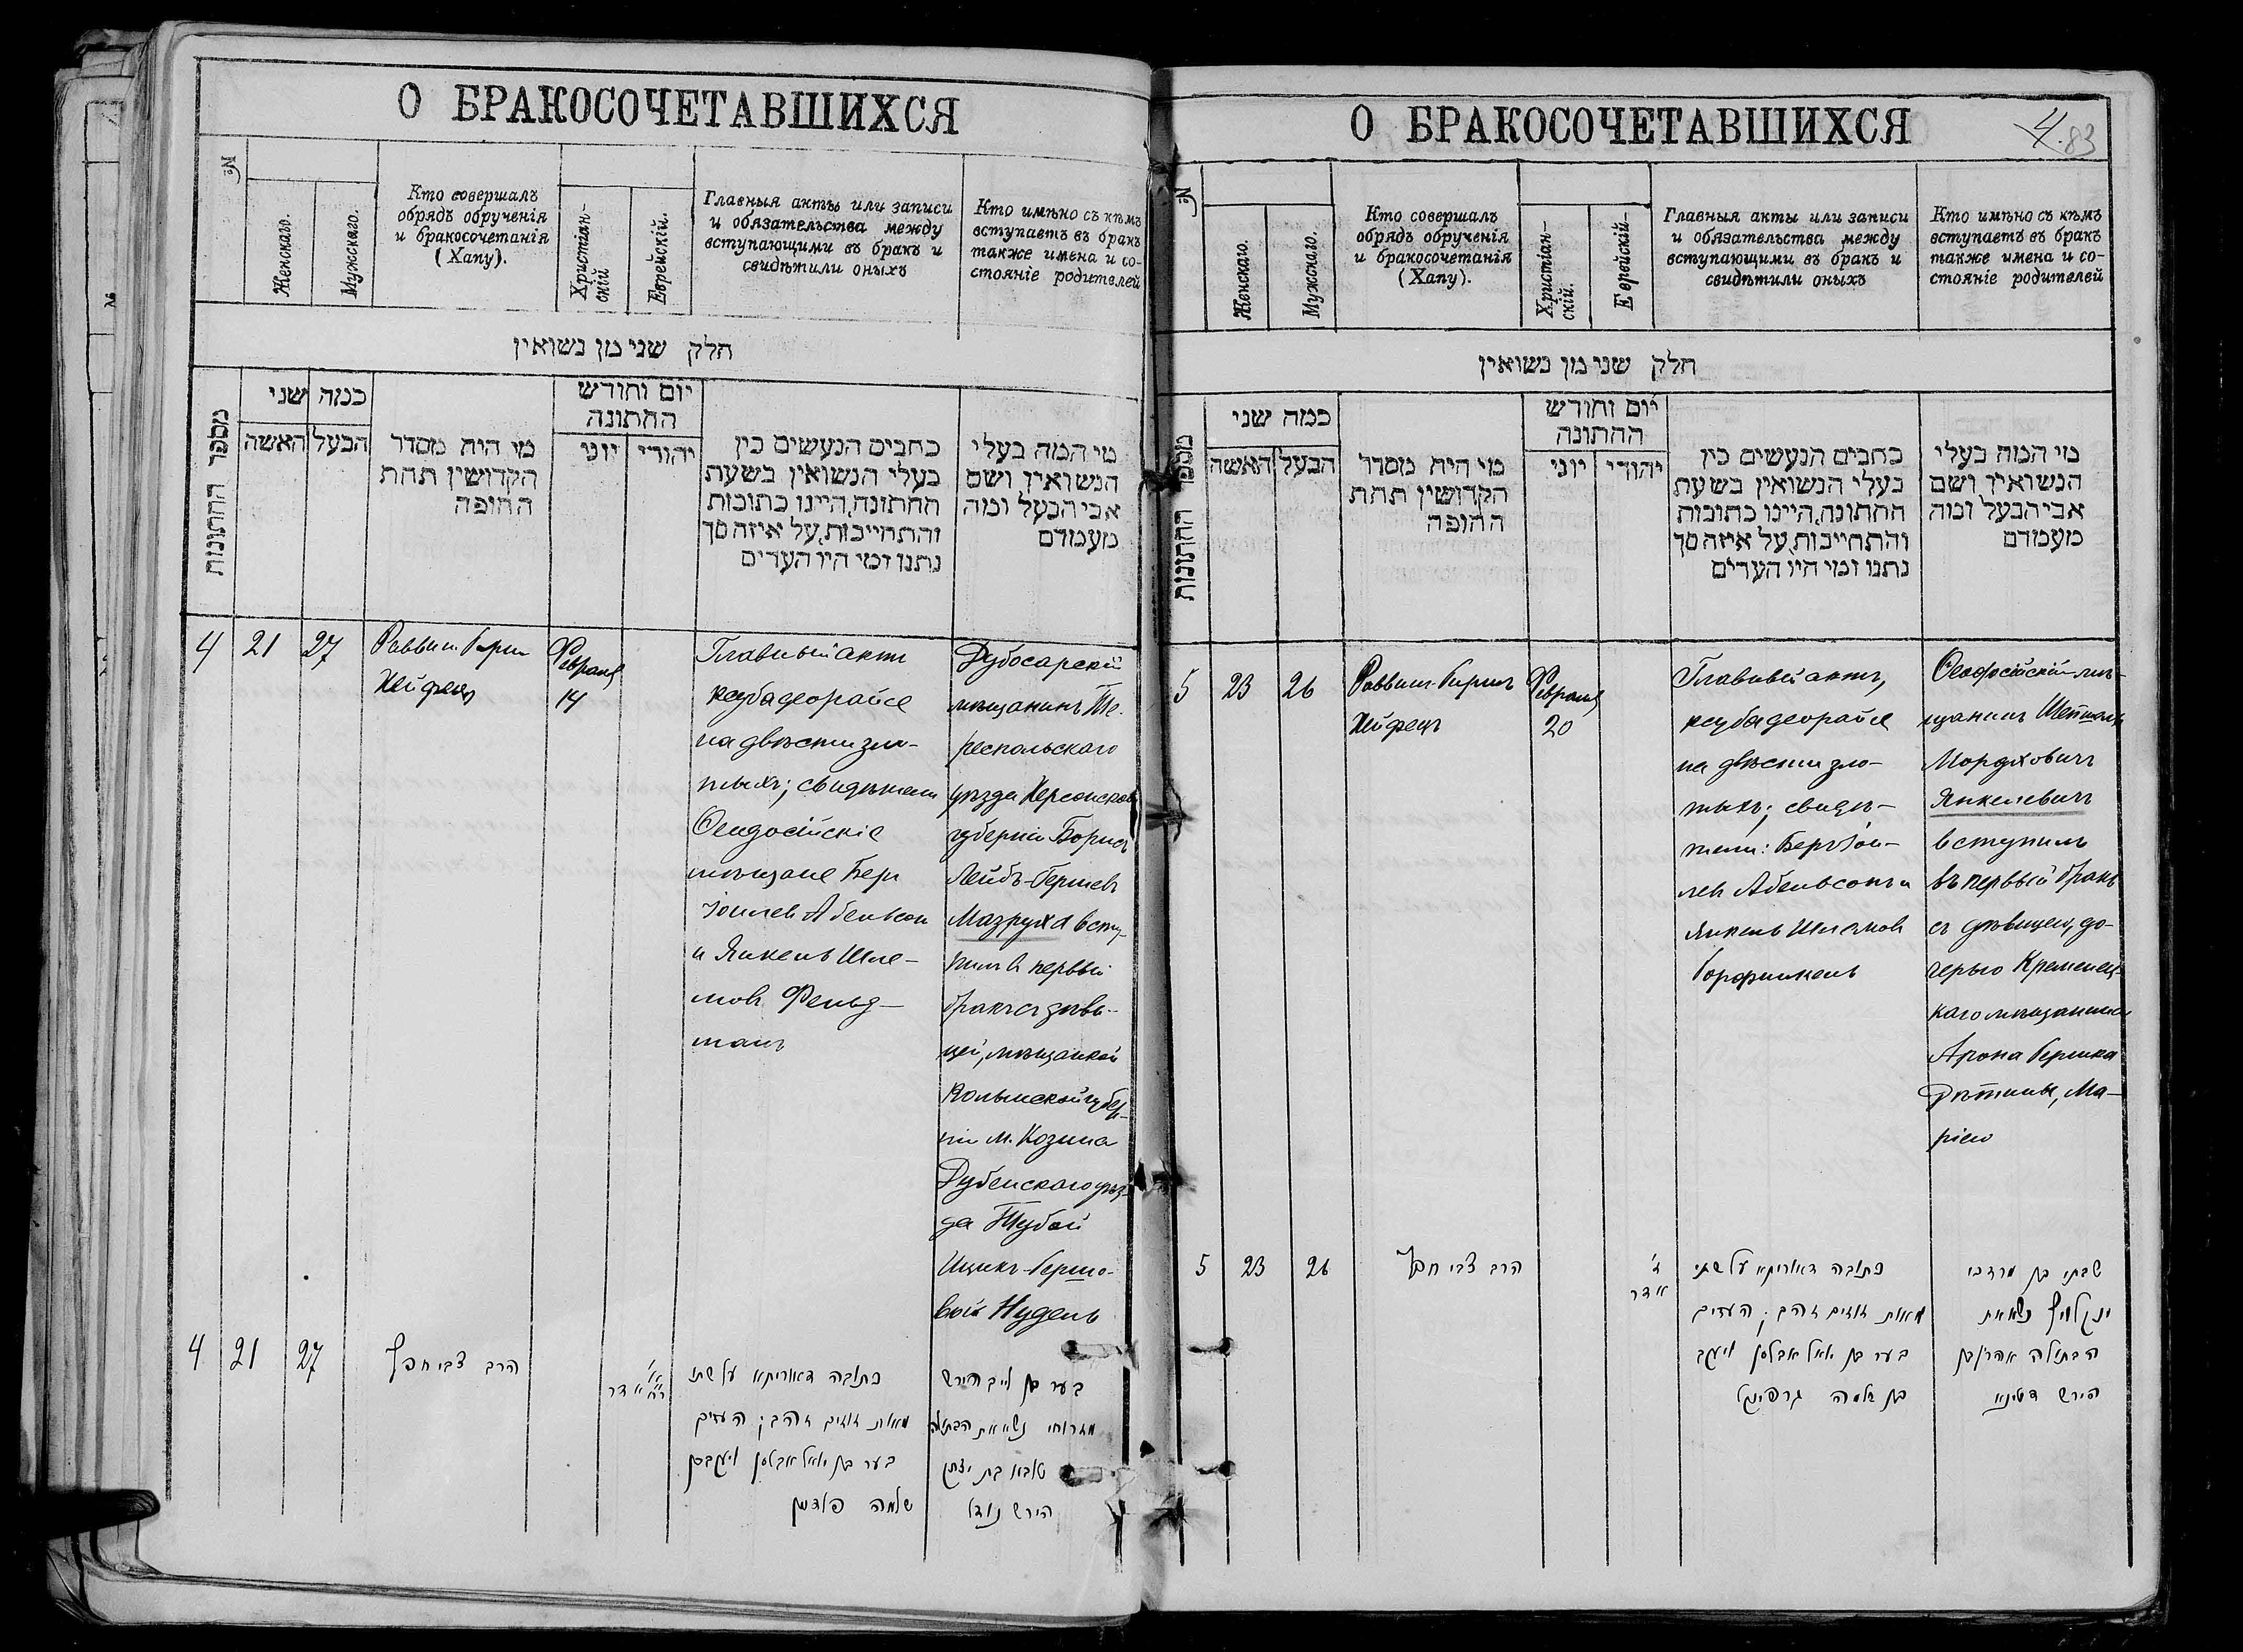 О БРАКОСОЧЕТАВШИХСЯ
№
Женскаго.
Мужскаго.
Кто совершалъ
обрядъ обрученія
и бракосочетанія
(Хапу).
Христіан-
скій
Еврейскій.
Главныя акты или записи
и обязательства между
вступающими въ бракъ и
свидѣтили оныхъ
Кто имѣно съ кѣмъ
вступаетъ въ бракъ
также имена и со-
стояніе родителей
חלק שני מן נשואין
מספר החתונות
כמה שני
האשה
הבעל
מי היה מסדר
הקדושין תחת
החופה
יום וחודש
החתונה
יוני
יהודי
כתבים הנעשים בין
בעלי הנשואין בשעת
החתונה, היינו כתובות
והתחייבות, על איזה סך
נתנו ומי היו העדים
מי המה בעלי
הנשואין ושם
אבי הבעל ומה
מעמדם
4
21
27
Раввин Герш
Хейфецъ
Февраля
14
Главный актъ
ксубадеорайсе
на двѣсти зло-
тыхъ; свидѣтели
Ѳеодосійскіе
мѣщане Бер
Іоилев Абельсон
и Янкель Шле-
мов Фельд-
манъ
Дубосарскій
мѣщанинъ Ти-
распольскаго
уѣзда Херсонской
губерніи Борисъ
Лейбъ-Гершев
Мазруха всту-
пилъ в первый
бракъ съ дѣви-
цей, мѣщанкой
Волынской губер-
ніи м. Козина
Дубенскаго уѣз-
да Тубой
Ицикъ-Гершо-
вой Нудель
4
21
27
הרב צבי חפץ
א'
ר"ח אדר
כתובה דאורייתא על שתי
מאות זוזים זהב; העדים
בער בן יואל אבלסון ויעקב בן
שלמה פלדמן
בער בן לייב הירש
מזרוחי נשא את הבתולה
טובא בת יצחק
הירש נודל
О БРАКОСОЧЕТАВШИХСЯ
4.
83
№
Женскаго.
Мужскаго.
Кто совершалъ
обрядъ обрученія
и бракосочетанія
(Хапу).
Христіан-
скій.
Еврейскій-
Главныя акты или записи
и обязательства между
вступающими въ бракъ и
свидѣтили оныхъ
Кто имѣно съ кѣмъ
вступаетъ въ бракъ
также имена и со-
стояніе родителей
חלק שני מן נשואין
מספר החתונות
כמה שני
האשה
הבעל
מי היה מסדר
הקדושין תחת
החופה
יום וחודש
החתונה
יוני
יהודי
כתבים הנעשים בין
בעלי הנשואין בשעת
החתונה, היינו כתובות
והתחייבות, על איזה סך
נתנו ומי היו העדים
מי המה בעלי
הנשואין ושם
אבי הבעל ומה
מעמדם
5
23
26
Раввин-Гершъ
Хейфецъ
Февраля
20
Главный актъ,
ксубадеорайсе
на двѣсти зло-
тыхъ; свидѣ-
тели: Бер Іои-
лев Абельсонъ и
Янкель Шлемов
Горфинкель
Ѳеодосійскій мѣ-
щанинъ
Мордховичъ
Янкелевичъ
вступилъ
въ первый бракъ
съ дѣвицею, до-
черью Кременец-
каго мѣщанина
Арона Гершка
Дѣтины, Ма-
ріею
5
23
26
הרב צבי חפץ
ז'
אדר
כתובה דאורייתא על שתי
מאות זוזים זהב; העדים
בער בן יואל אבלסון ויעקב
בן שלמה גרפינקל
שבתי בן מרדכי
ינקלוויץ נשא את
הבתולה אהרן בן
הירש דטינא